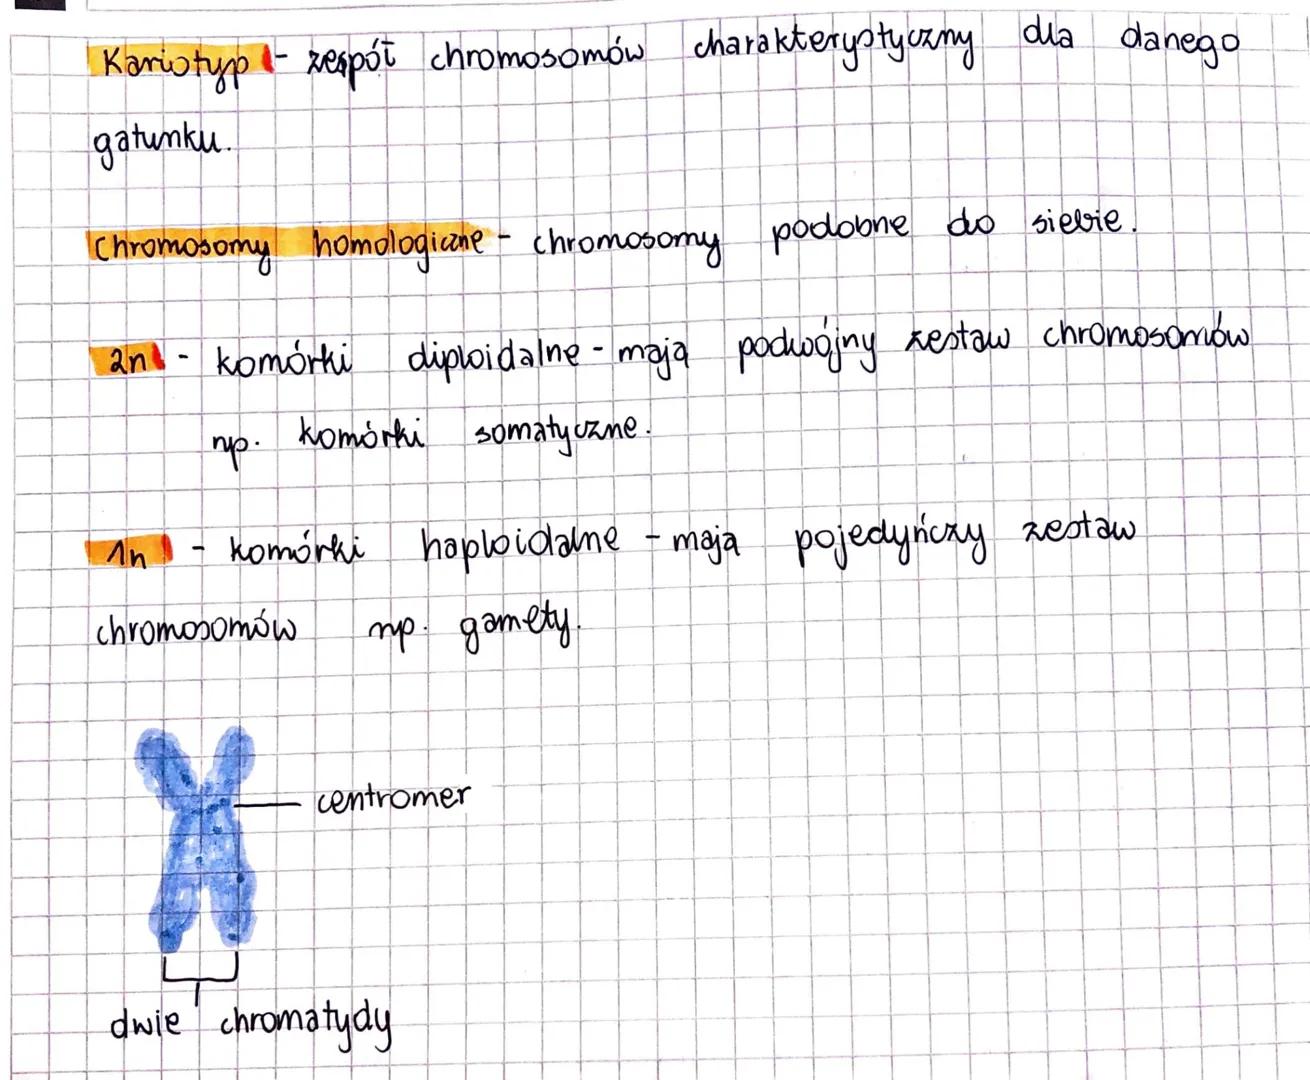 Kariotyp - zespół chromosomów charakterystyczny dla danego
gatunku.
Chromosomy homologiczne - chromosomy podobne do siebie.
2n - komórki diploidalne - mają podwójny zestaw chromosomów
np. komórki somatyczne.
1n - komórki haploidalne - mają pojedyńczy zestaw
chromosomów np. gamety.
centromer
dwie chromatydy